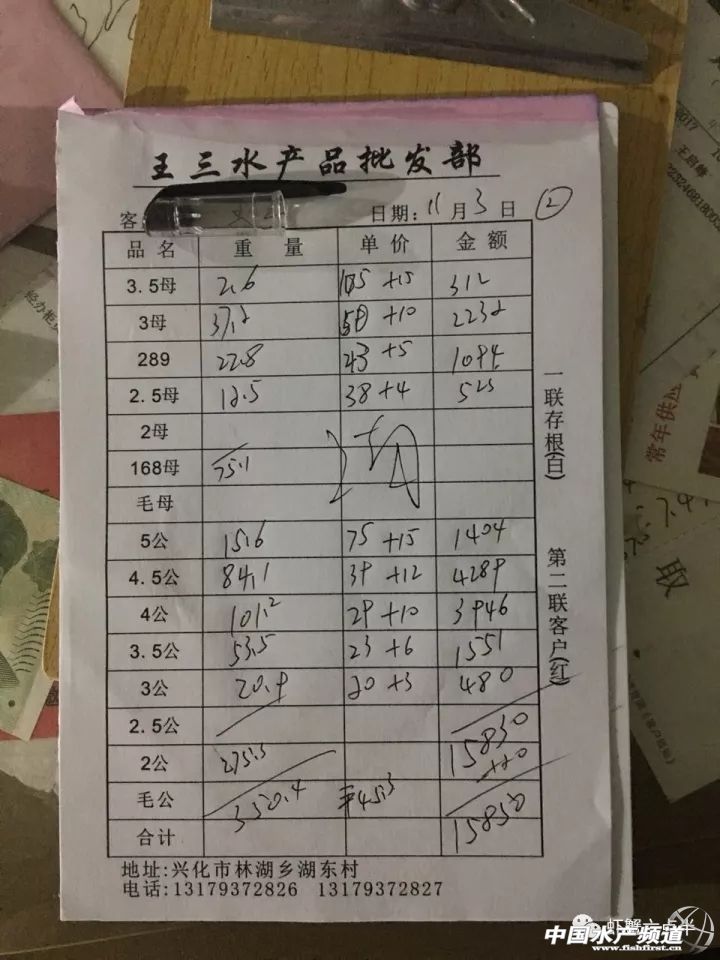 王三水产品批发部
客 日期: 11 月 3 日 ②
品名 重量 单价 金额
3.5母 2.6 105 +15 312
3母 37.2 50 +10 2232
289 22.8 43 +5 1094
2.5母 12.5 38 +4 525
2母
168母 75.1
毛母
5公 15.6 75 +15 1404
4.5公 84.1 39 +12 4289
4公 101.2 29 +10 3946
3.5公 53.5 23 +6 1551
3公 20.9 20 +3 480
2.5公 15830
2公 275.3 +20
毛公 350.4 平45.3
合计 15850
地址:兴化市林湖乡湖东村
电话:13179372826 13179372827
一联存根(白)
第二联客户(红)
王启峰
常年供应
虾蟹六点半
中国水产频道
www.fishfirst.cn